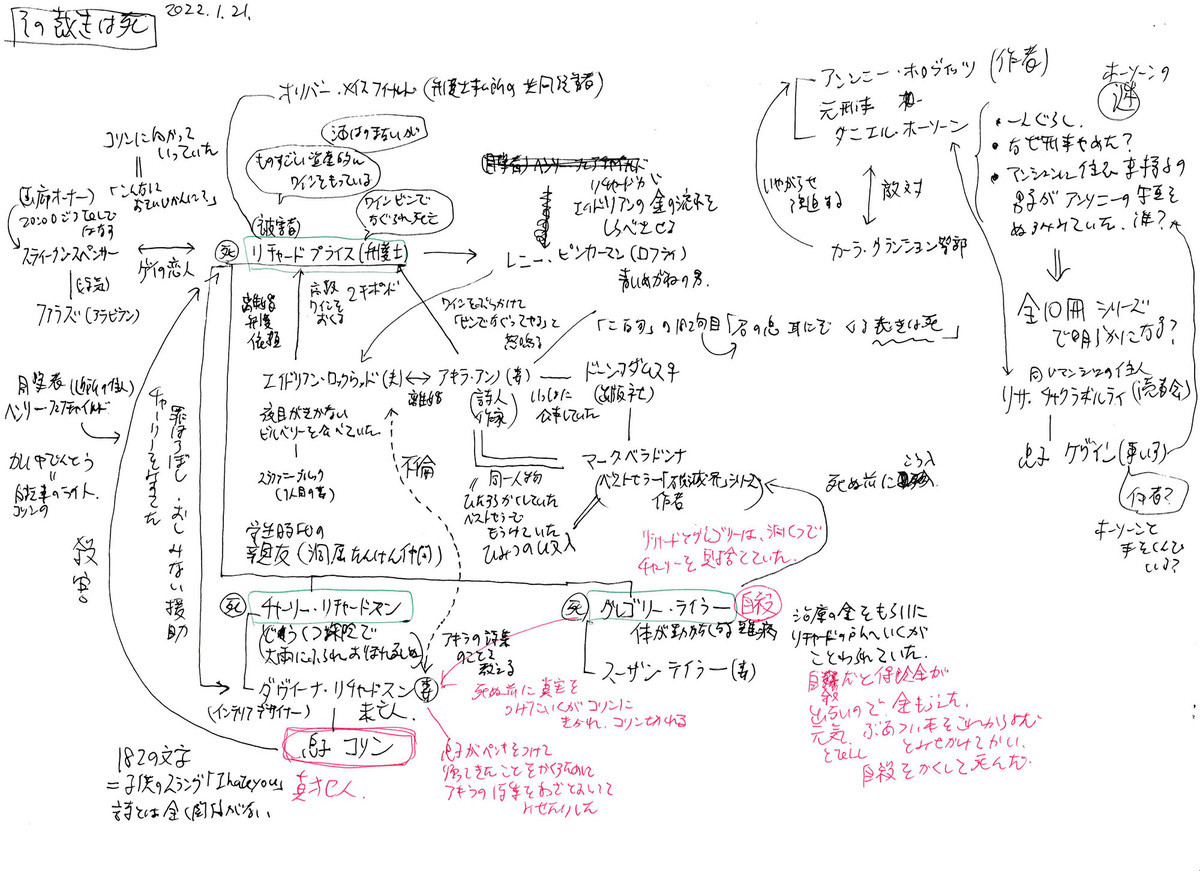 その裁きは死
2022.1.21.
オリバー・メイスフィールド(弁護士事ム所の共同経営者)
酒はのまないが
ものすごい資産的な
ワインをもっている
ワインビンで
なぐられ死亡
コリンに向かって
いっていた
画廊オーナー)「こんな時に
おそいじかんに?」
スティーブン・スペンサー
ゲイの恋人
(浮気)
ファラズ(アラビアン)
被害者
死
リチャードプライス(弁護士)
リチャードが
エイドリアンの金の流れを
しらべさせる
レニー・ピンカーマン(ロフティ)
青いめがねの男.
離婚
弁護
依頼
高級
ワインを
おくる
2千ポンド
ワインをぶっかけて
「ビンでなぐってやる」と
怒鳴る
エイドリアン・ロックウッド(夫)
離婚
アキラ・アンノ(妻)
(詩人
作家)
いっしょに
仕事していた
ドーン・アダムス
(出版社)
「二百句」の182句目「君の息 耳にとどくる 裁きは死」
夜目がきかない
ビルベリーを食べていた.
ステファニー・ブルック
(1人目の妻)
不倫
同一人物
ひたかくしていた
ベストセラーで
もうけていた
ひみつの収入
マークベラドンナ
(ベストセラー「破滅界シリーズ」
作者
目撃者(近所の住人)
ヘンリー・フェアチャイルド
かい中でんとう
自転車のライト.
コリンの
殺害
罪ほろぼし.おしみない援助
学生時代の
親友(洞屈たんけん仲間)
死
チャーリー・リチャードスン
どうくつ探険で
大雨にふられおぼれる
ダヴィーナ・リチャードスン
妻
(インテリアデザイナー)
未亡人
息子 コリン
真はんにん.
182の文字
=子供のスラング「I hate you」
詩とは全く関係がない.
アキラの詩集
のことを
教える
死ぬ前に真実を
つげにいくがコリンに
きかれ、コリンがキレる
アキラの詩集をわざとおいて
リチャードとグレゴリーは、洞くつで
チャーリーを見捨てていた.
死ぬ前に
こう入
死
グレゴリー・テイラー
自殺
体が動かなくなる難病
スーザン・テイラー(妻)
治療の金をもらいに
リチャードの所へいくが
ことわられていた.
自殺だと保険金が
出ないので.
元気.ぶあつい本をこれからよむ
とみせかけてかい.
自殺をかくして死んだ.
アンソニー・ホロヴィッツ (作者)
元刑事
ダニエル・ホーソーン
いやがらせ
敵対
カーラ・グランショー警部
ホーソーンの
謎
・一人ぐらし.
・なぜ刑事やめた?
・アンソニーの
男子がアンソニーの写真を
誰?
全10冊シリーズ
で明らかになる?
同じマンションの住人
リサ・チャクラボルティ(読書会)
息子 ケヴィン(車いす)
何者?
ホーソーンと
手をくんで
いる?